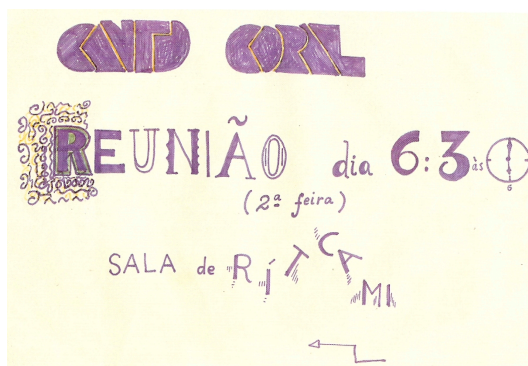 CANTO CORAL
REUNIÃO dia 6:3 às
6
(2ª feira)
SALA de RÍTCAMI